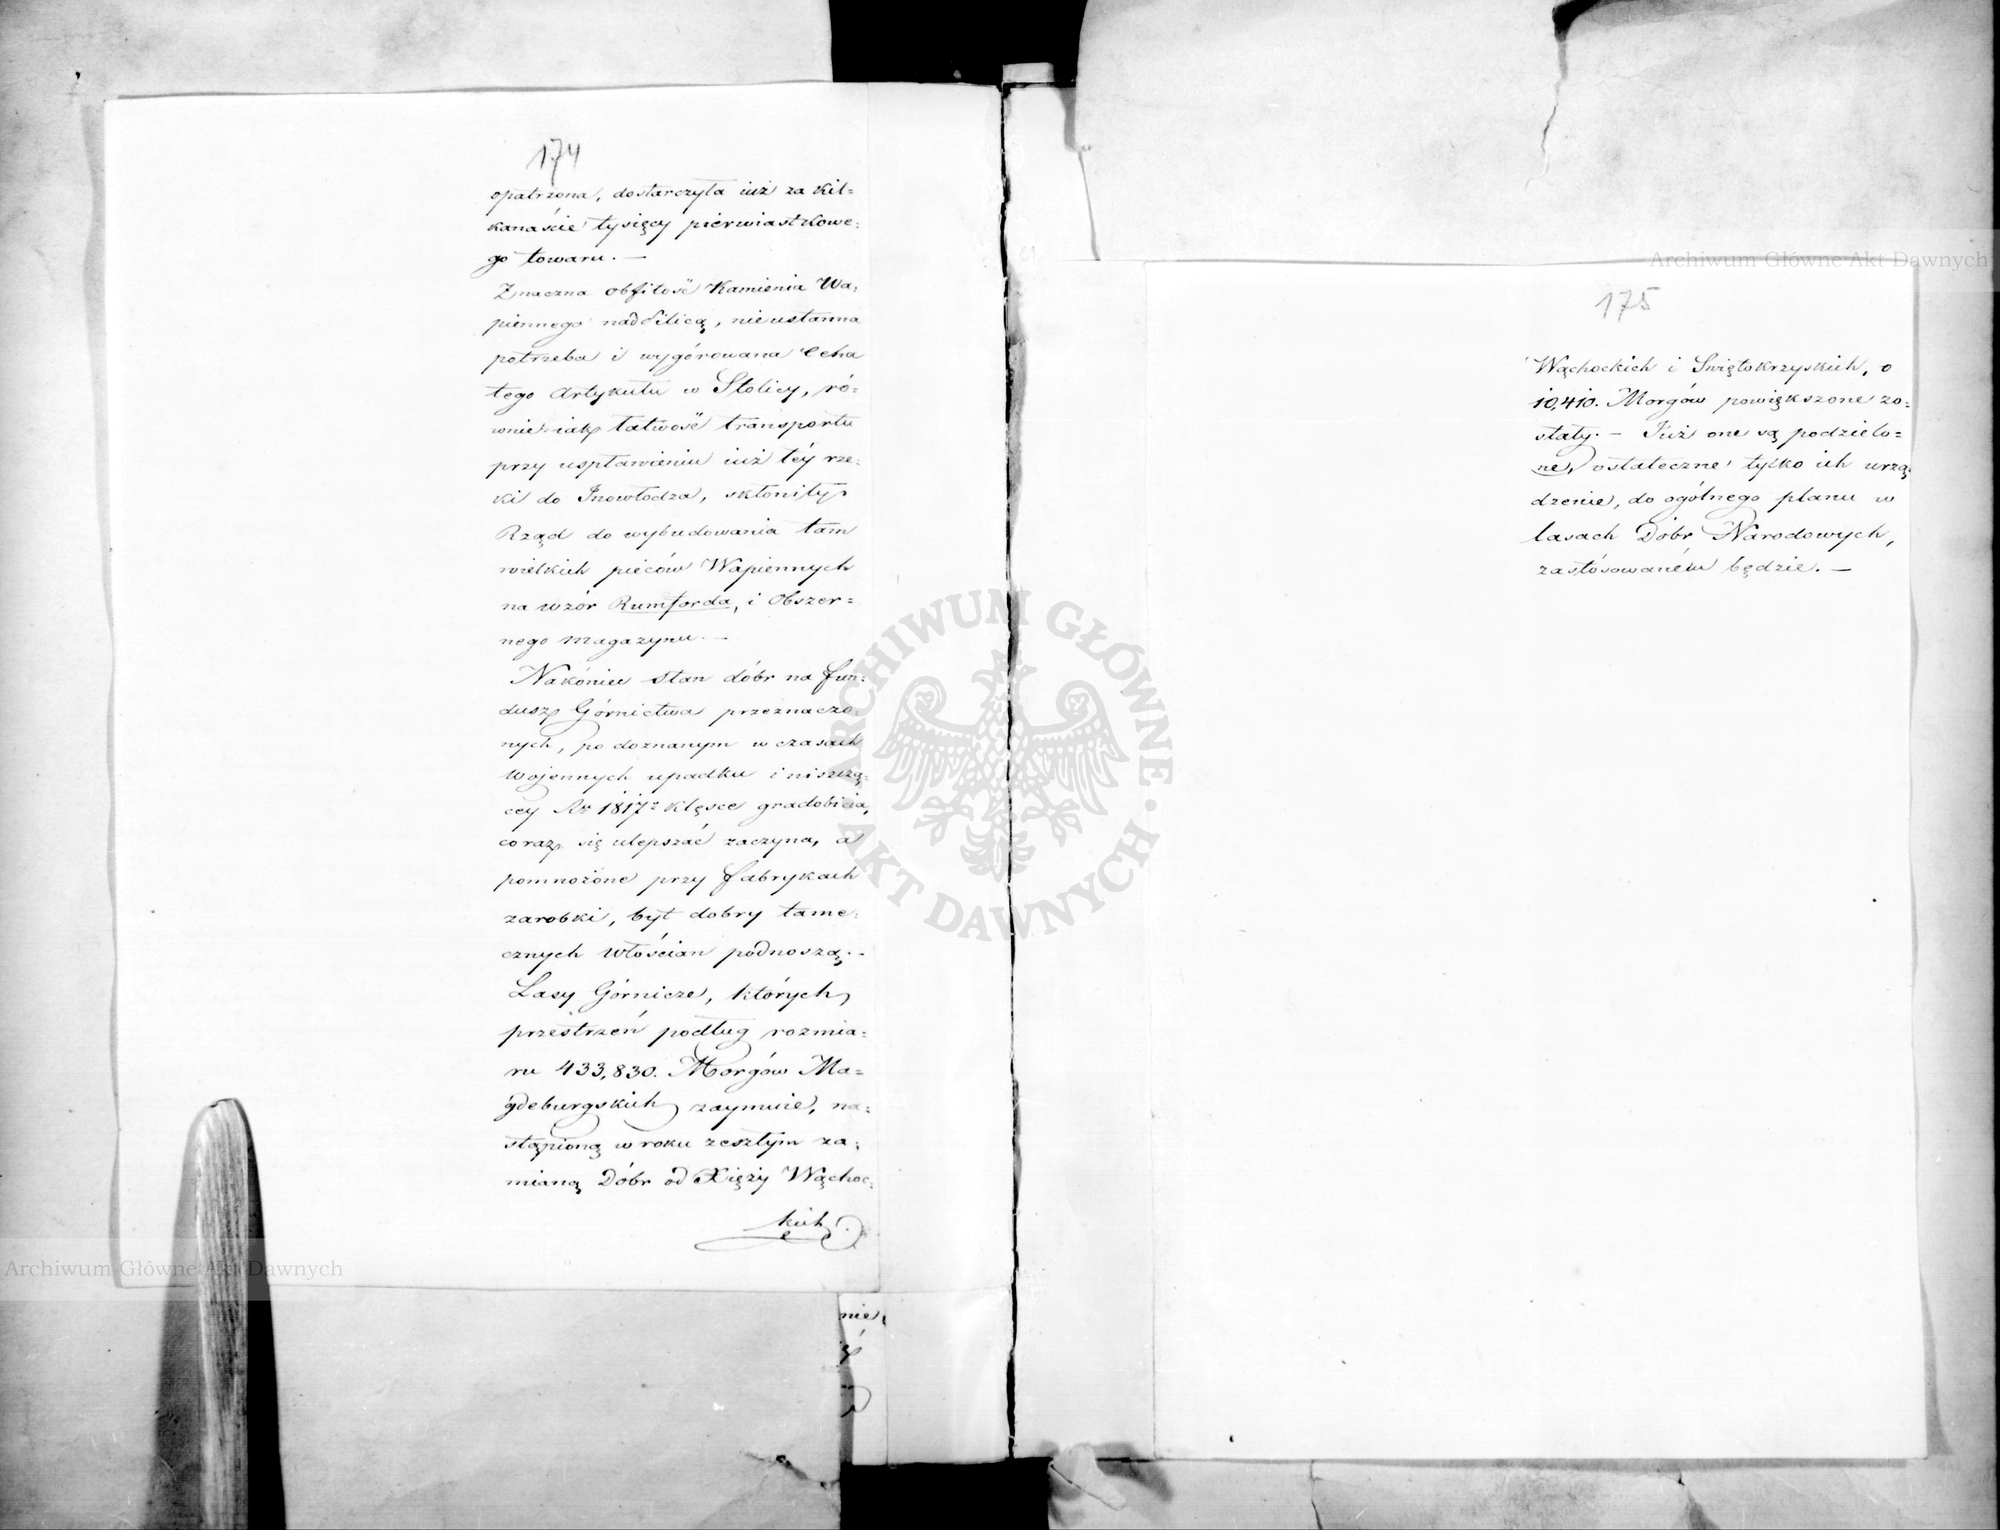 174
opatrzona, dostarczyła iuż za kil=
kanaście tysięcy pierwiastkowe=
go towaru. —
Znaczna obfitość Kamienia Wa=
piennego nad Pilicą, nieustanna
potrzeba i wygórowana Cena
tego Artykułu w Stolicy, ró=
wnie iak łatwość transportu
przy uspławieniu iuż téy rze=
ki do Inowłodza, skłoniły
Rząd do wybudowania tam
wielkich pieców Wapiennych
na wzór Rumforda, i Obszer=
nego Magazynu. —
Nakoniec stan dóbr na fun=
dusz Górnictwa przeznaczo=
nych, po doznanym w czasach
Wojennych upadku i niszczą=
cey Ru 1817º klęsce gradobicia,
coraz się ulepszać zaczyna, a
pomnożone przy fabrykach
zarobki, byt dobry tame=
cznych Włościan podnoszą. —
Lasy Górnicze, których
przestrzeń podług rozmia=
ru 433,830. Morgów Ma=
gdeburgskich zaymuie, na=
stąpioną w roku zeszłym za=
mianą Dóbr od Xięży Wąchoc=
kich
nie
Archiwum Główne Akt Dawnych
175
Wąchockich i Swiętokrzyskich, o
10,410. Morgów powiększone zo=
stały. — Już one są podzielo=
ne, ostateczne tylko ich urzą=
dzenie, do ogólnego planu w
lasach Dóbr Narodowych,
zastosowaném będzie. —
Archiwum Główne Akt Dawnych
ARCHIWUM GŁÓWNE · AKT DAWNYCH ·